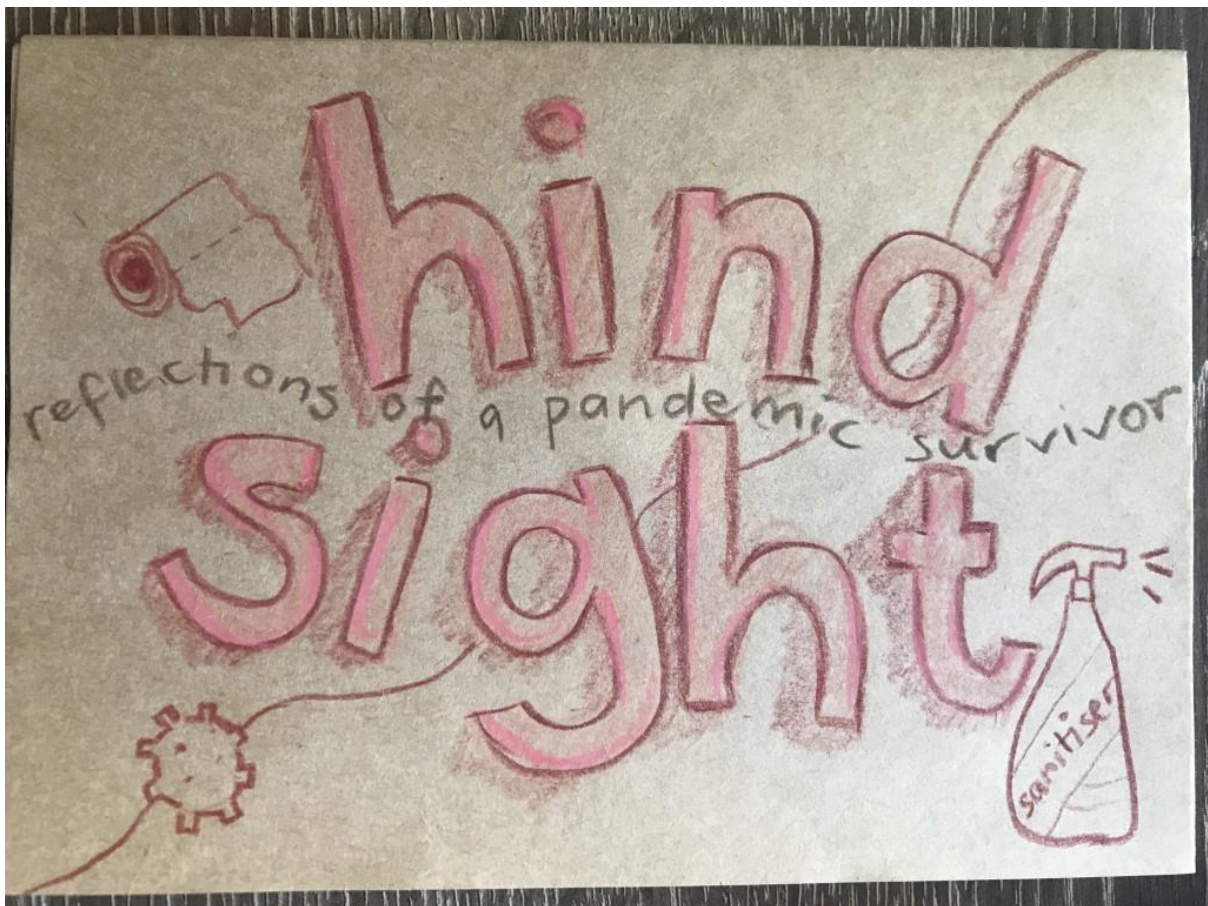 hind
reflections of a pandemic survivor
sight
sanitiser